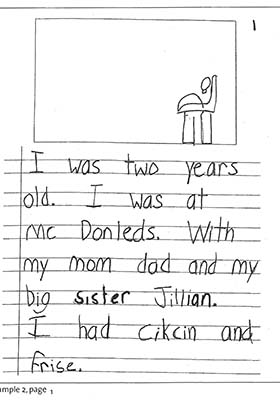 1
I was two years
old. I was at
Mc Donleds. With
my mom dad and my
big sister Jillian.
I had cikcin and
Frise.
ample 2, page 1